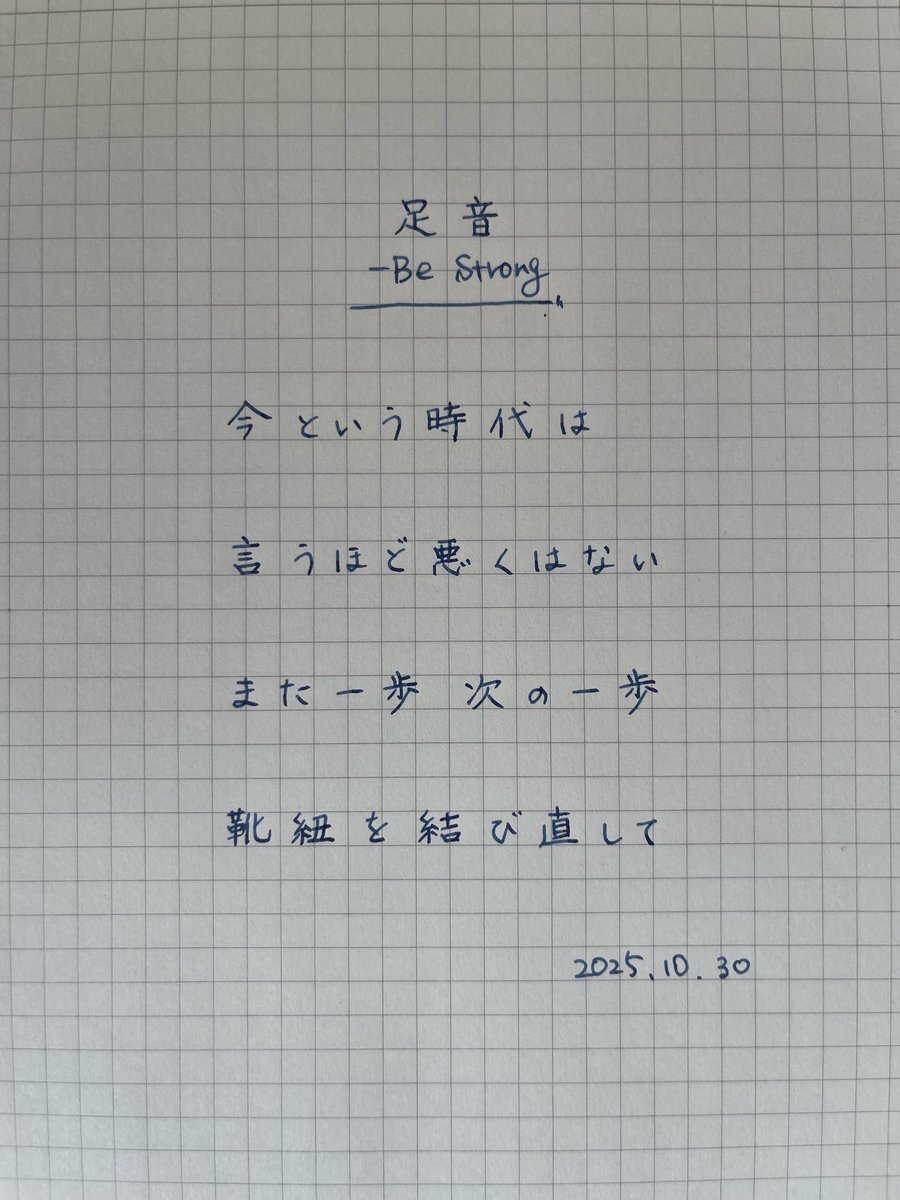 足音
-Be Strong
今という時代は
言うほど悪くはない
また一歩 次の一歩
靴紐を結び直して
2025.10.30